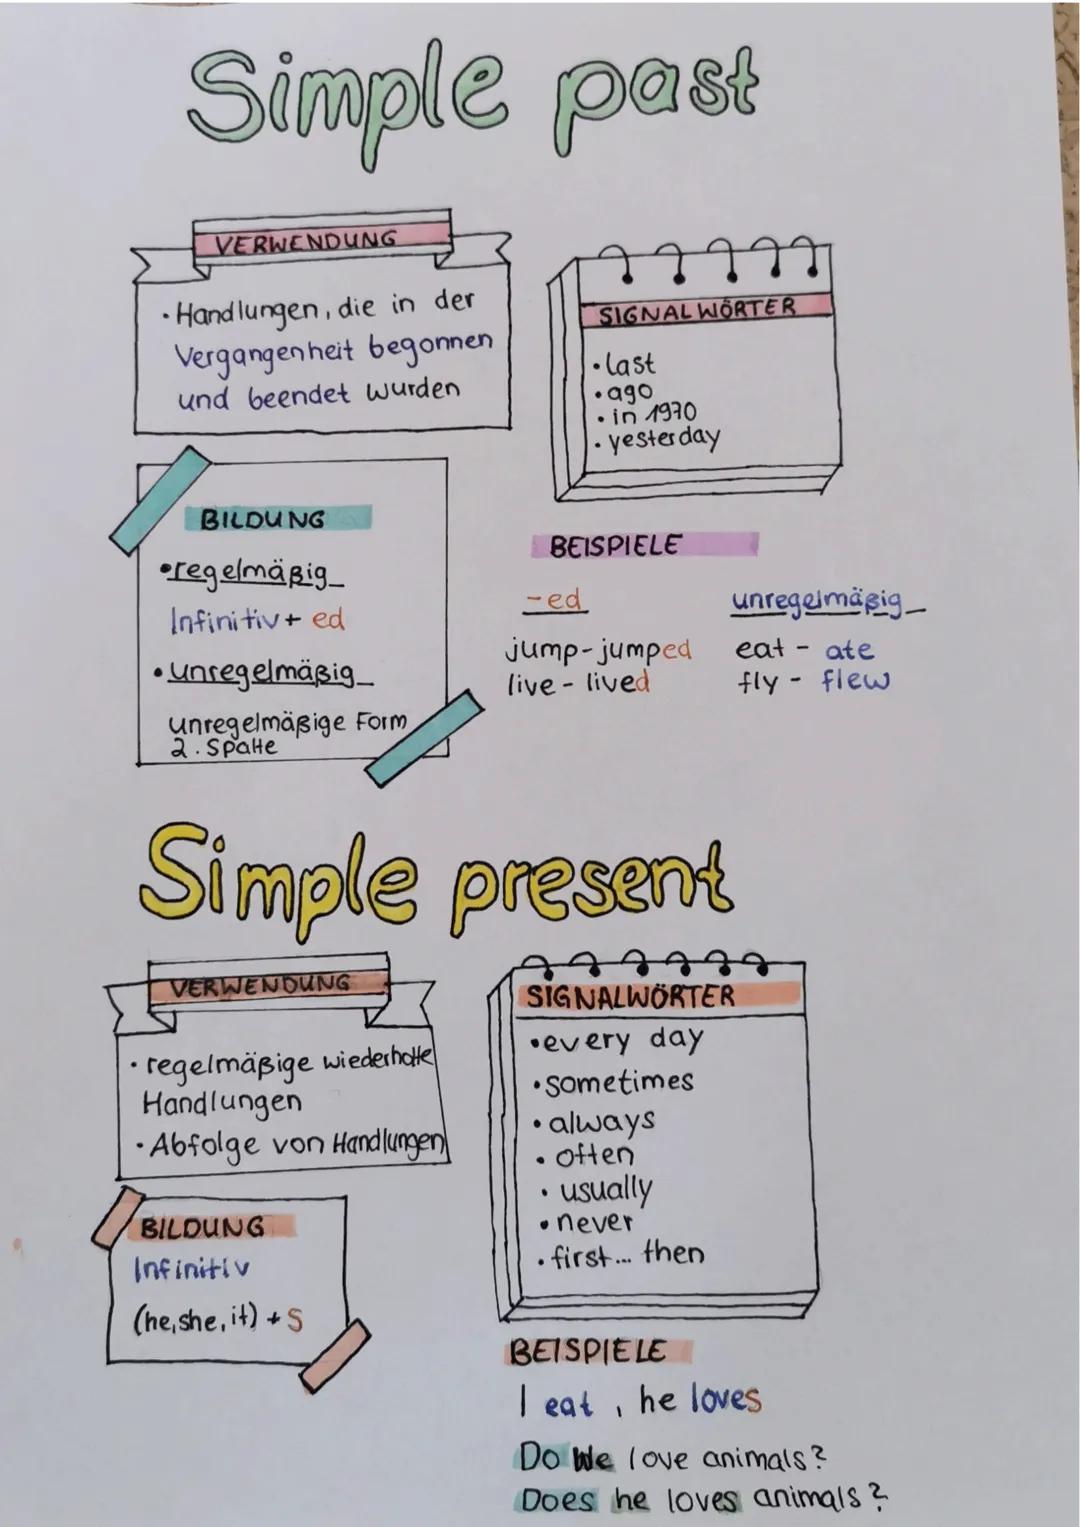 Simple past
VERWENDUNG
• Handlungen, die in der
Vergangenheit begonnen
und beendet wurden
SIGNALWÖRTER
• last
• ago
• in 1970
• yesterday
BILDUNG
• regelmäßig
Infinitiv + ed
• unregelmäßig
unregelmäßige Form
2. Spalte
BEISPIELE
-ed
jump - jumped
live - lived
unregelmäßig
eat - ate
fly - flew
Simple present
VERWENDUNG
• regelmäßige wiederholte
Handlungen
• Abfolge von Handlungen
SIGNALWÖRTER
• every day
• sometimes
• always
• often
• usually
• never
• first... then
BILDUNG
Infinitiv
(he, she, it) + s
BEISPIELE
I eat, he loves
Do we love animals?
Does he loves animals?